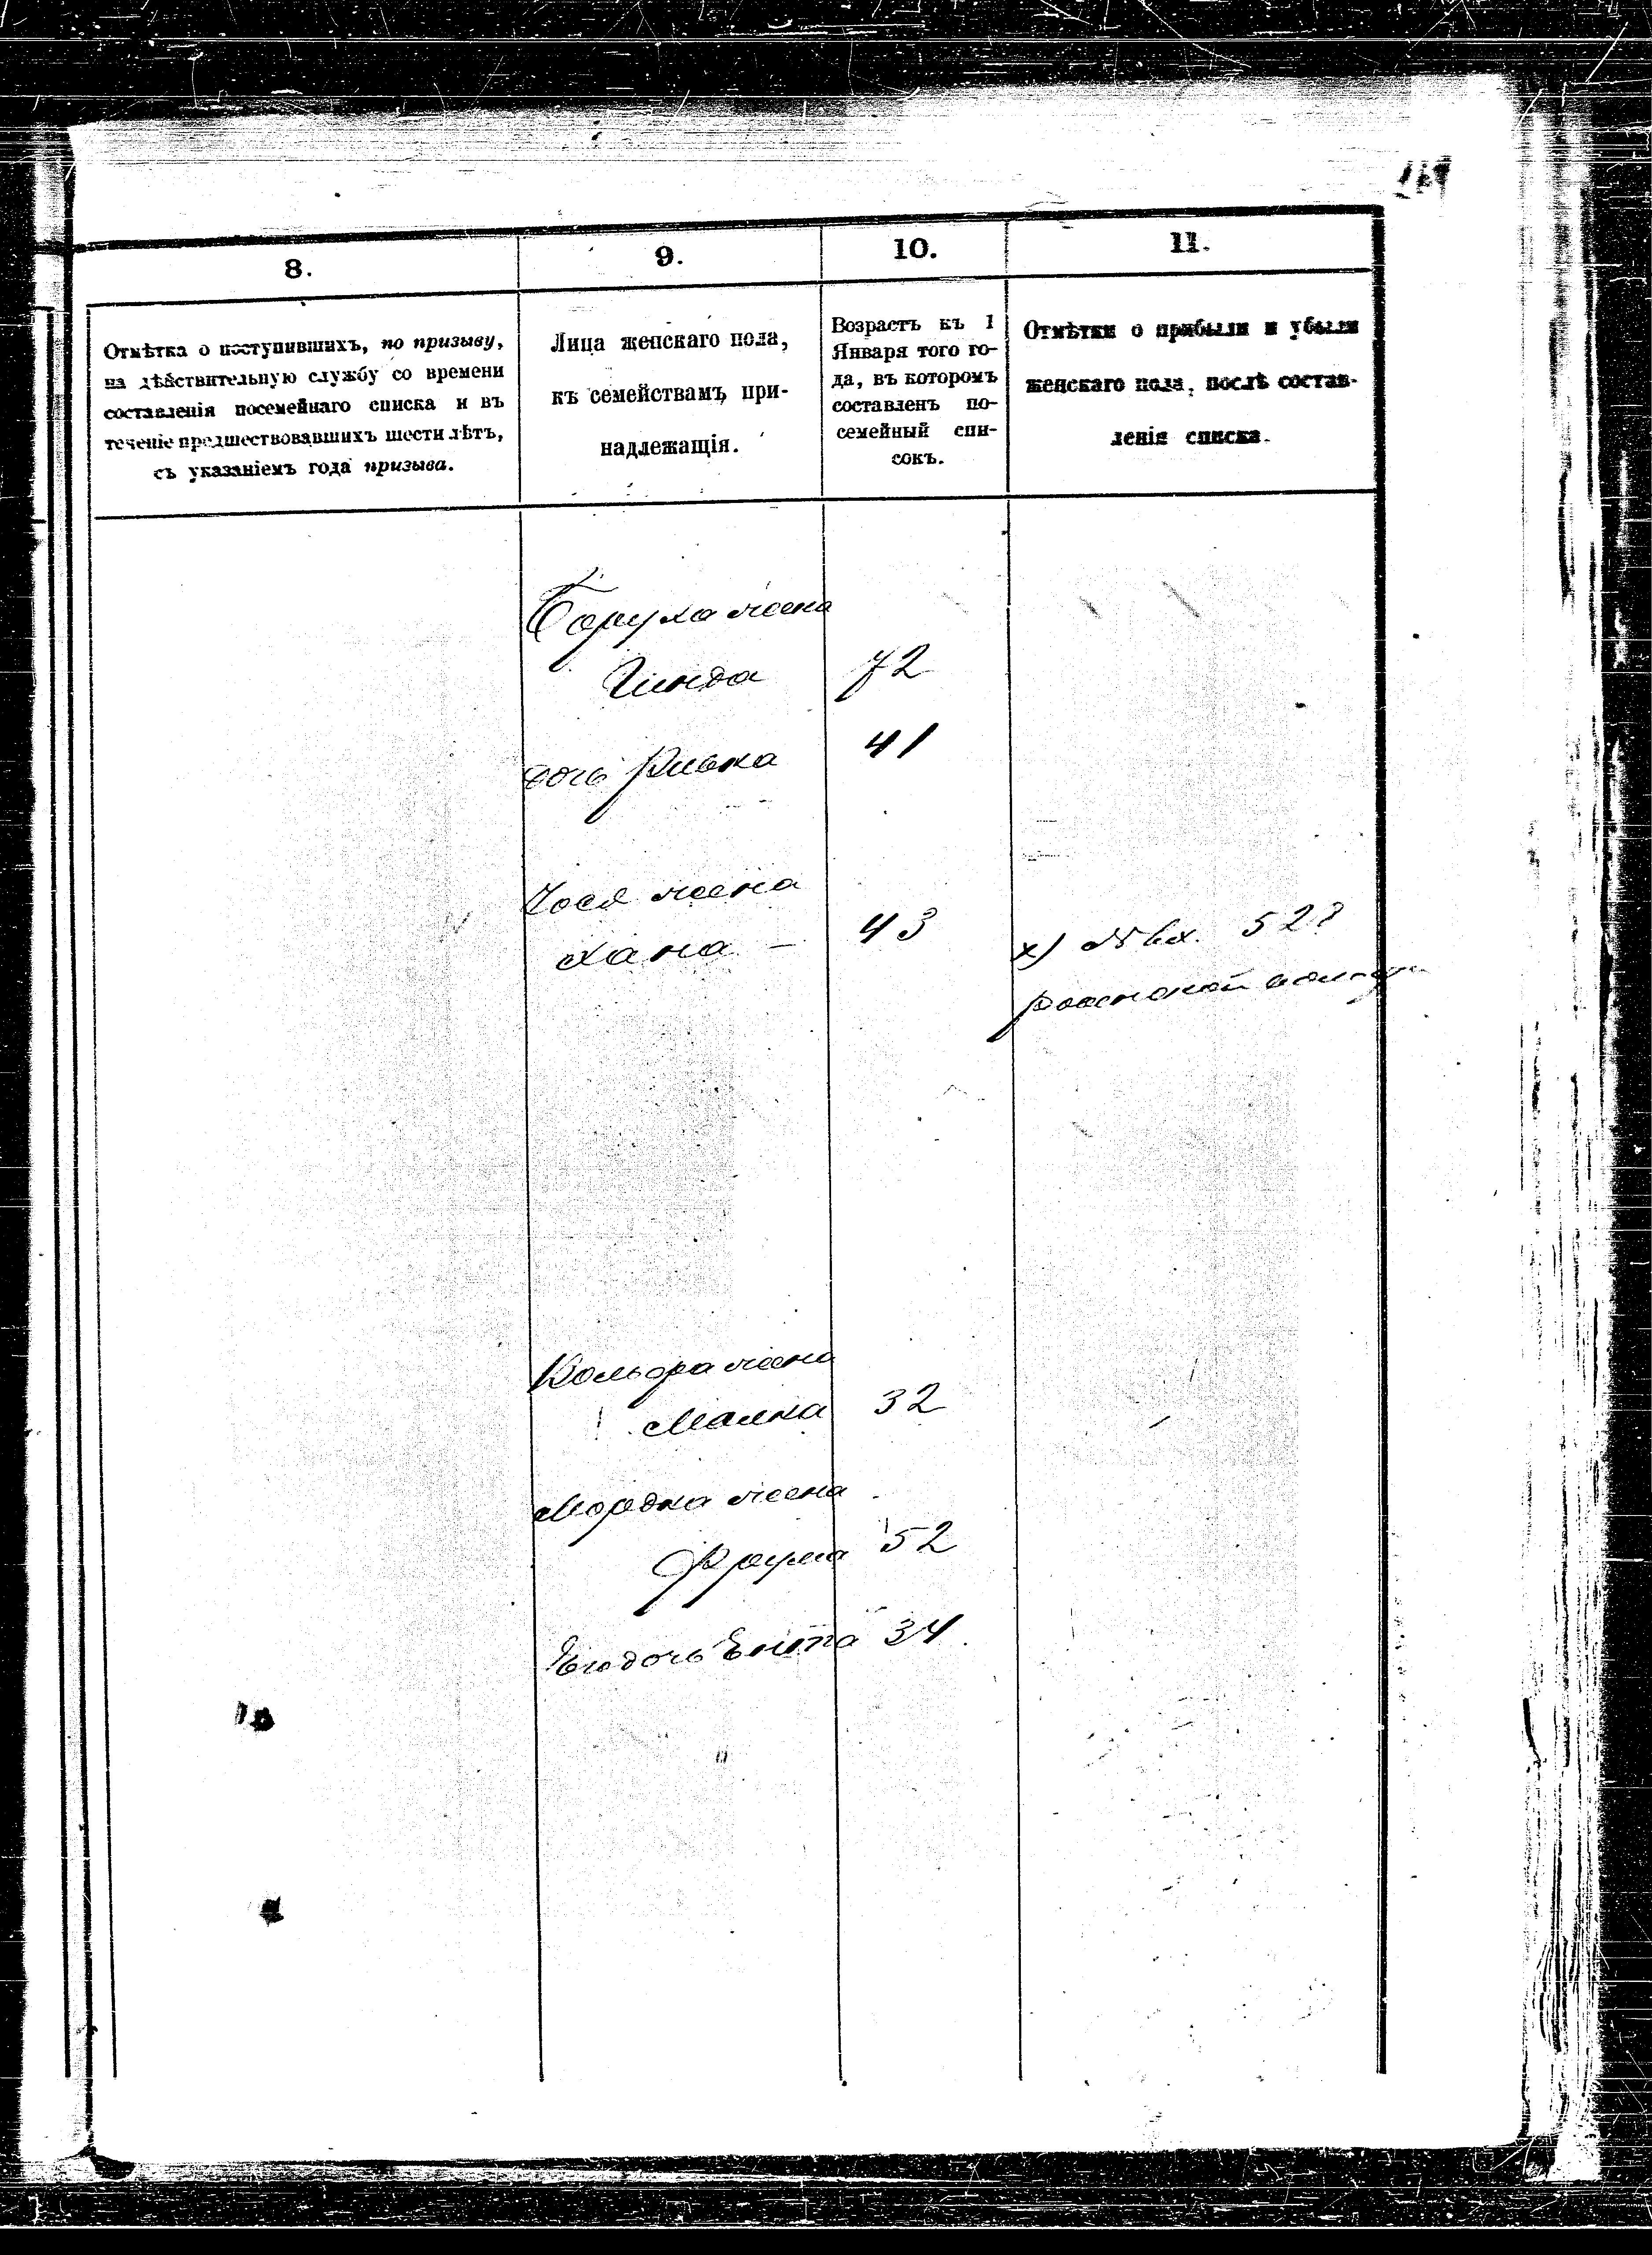 8.
9.
10.
11.
Отмѣтка о поступившихъ, по призыву,
на дѣйствительную службу со времени
составленія посемейнаго списка и въ
теченіе предшествовавшихъ шести лѣтъ,
съ указаніемъ года призыва.
Лица женскаго пола,
къ семействамъ при-
надлежащія.
Возрастъ къ 1
Января того го-
да, въ которомъ
составленъ по-
семейный спи-
сокъ.
Отмѣтки о прибыли и убыли
женскаго пола, послѣ состав-
ленія списка.
Боруха жена
Гинда 72
дочь Ривка 41
Іося жена
Хана — 43
х) № вх. 52
Вольфа жена
Малка 32
Мордка жена
Фрума 52
Его дочь Ента 34